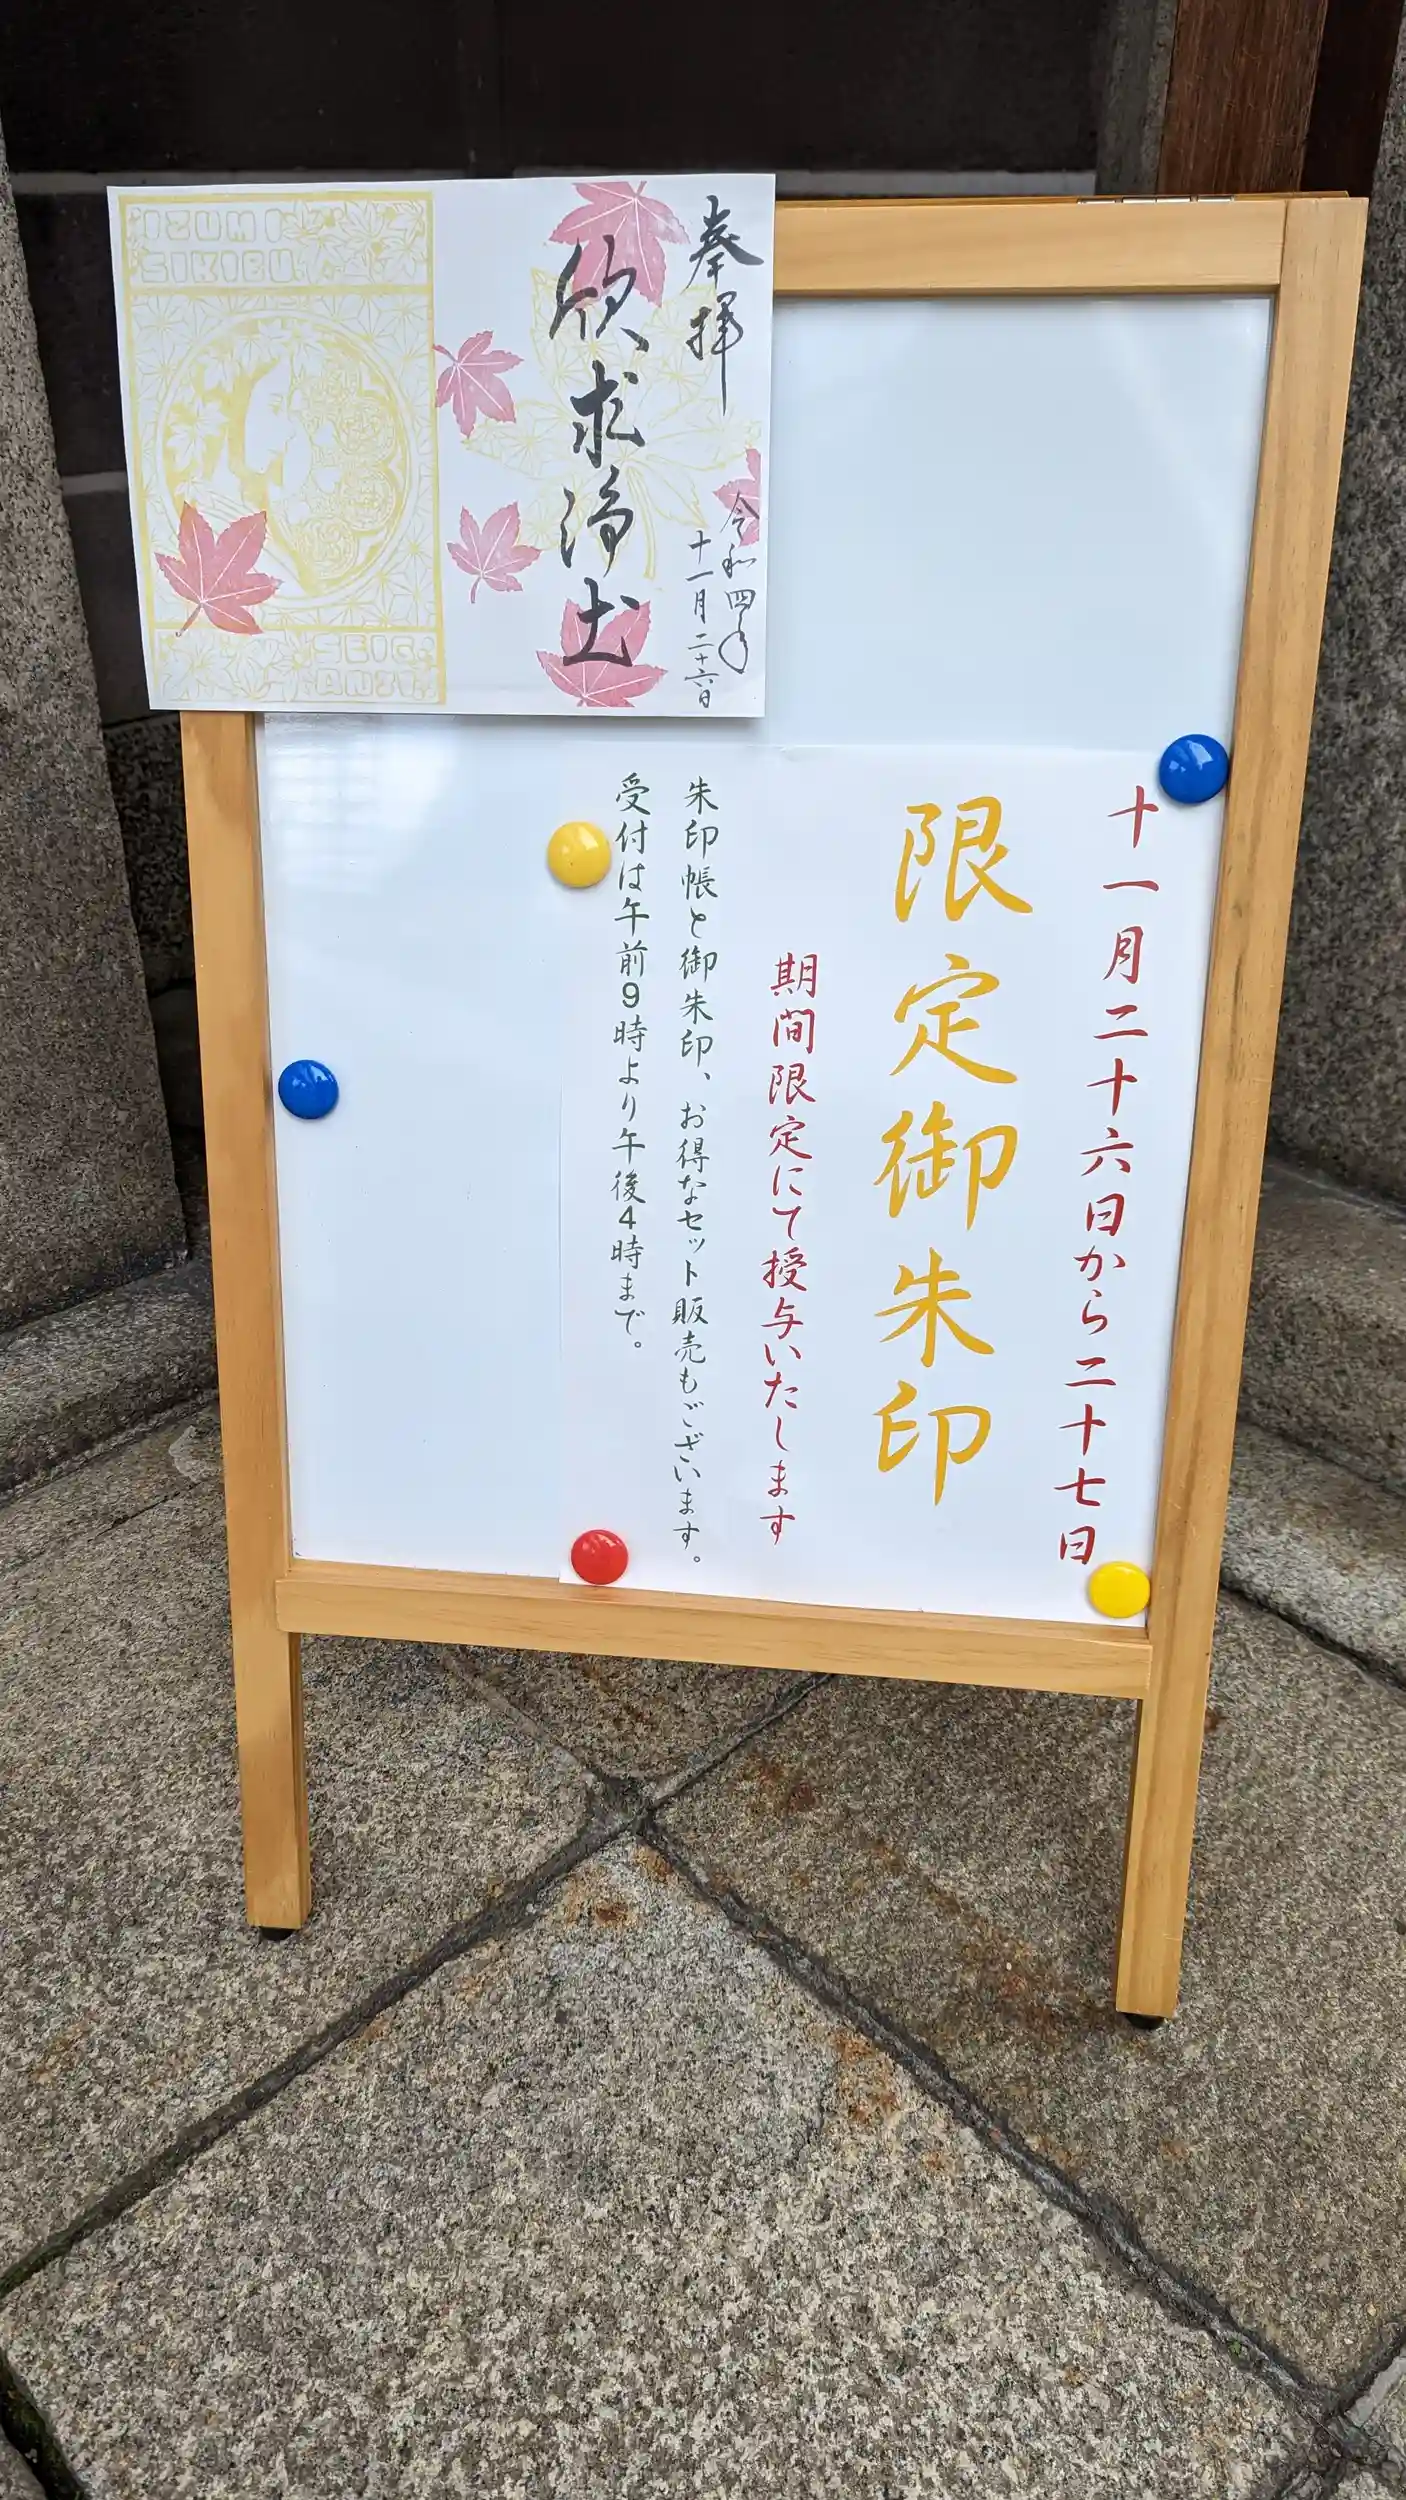 奉拝
令和四年
十一月二十六日
欣求浄土
IZUMI
SIKIBU
SEIG
ANZI
十一月二十六日から二十七日
限定御朱印
期間限定にて授与いたします
朱印帳と御朱印、お得なセット販売もございます。
受付は午前9時より午後4時まで。